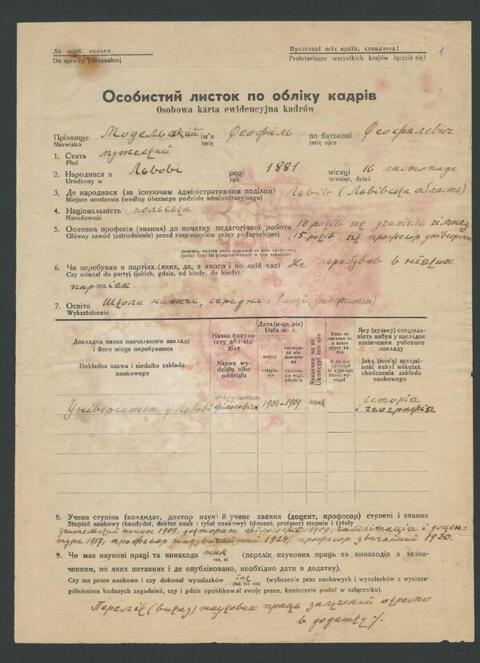 До особ. справи
Do sprawy personalnej
Пролетарі всіх країн, єднайтеся!
Proletariusze wszystkich krajów łączcie się!
1
Особистий листок по обліку кадрів
Osobowa karta ewidencyjna kadrów
Прізвище Модельский ім'я Теофіль по батькові Теофілевич
Nazwisko imię ojca
1. Стать мужеский
Płeć
2. Народився в Львові році 1881 місяці, дні 16 листопада
Urodzony w roku miesiąc, dzień
3. Де народився (за існуючим адміністративним поділом) Львів (Львівська область)
Miejsce urodzenia (według obecnego podziału administracyjnego)
4. Національність польська
Narodowość
5. Основна професія (звання) до початку педагогічної роботи 16 років як учитель гімназ.
Główny zawód (zatrudnienie) przed rozpoczęciem pracy pedagogicznej 15 років як професор універси
6. Чи перебував в партіях (яких, де, з якого і по який час) Не перебував в ніяких
Czy należał do partyj (jakich, gdzie, od kiedy, do kiedy)
партіях
7. Освіта Школи нижчі, середні і вищі (університет)
Wykształcenie
Докладна назва навчального закладу і його місце перебування
Dokładna nazwa i siedziba zakładu naukowego
Назва факультету або відділу
Nazwa wydziału albo oddziału
Дата (м-ця, рік)
Data m. r.
Яку (вузьку) спеціальність набув у наслідок закінчення учбового закладу
Jaką (ścisłą) specjalność nabył wskutek ukończenia zakładu naukowego
Університет у Львові філософіч. 1904–1909 так історія і географія
8. Учена ступінь (кандидат, доктор наук) й учене звання (доцент, професор) ступені і звання
Stopień naukowy (kandydat, doktor nauk) i tytuł naukowy (docent, profesor) stopnie i tytuły
учительский іспит 1909, докторат філософії 1909, габілітація і доцен-
тура 1917, професор надзвичайний 1924, професор звичайний 1930.
9. Чи має наукові праці та винаходи так (перелік наукових праць та винаходів з зазна-
(так, ні)
ченням, по яких питаннях і де опубліковано, необхідно дати в додатку).
Czy ma prace naukowe i czy dokonał wynalazków (wyliczenie prac naukowych i wynalazków z wyszcze-
(tak lub nie)
gólnieniem badanych zagadnień, czy i gdzie opublikował swoje prace, konieczne podać w załączniku).
Перелік (виказ) наукових праць залучений окремо
в додатку /.